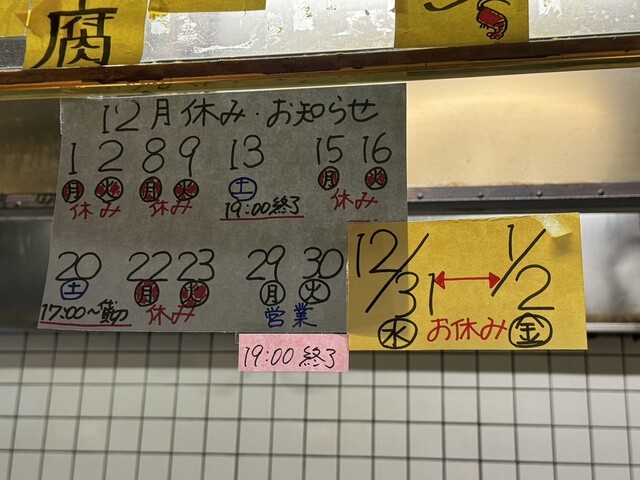 腐
12月休み・お知らせ
1 2 8 9 13 15 16
月 火 月 火 土 月 火
休み 休み 19:00終了 休み
20 22 23 29 30
土 月 火 月 火
17:00〜 休み 営業
19:00 終了
12/31 ↔ 1/2
水 お休み 金